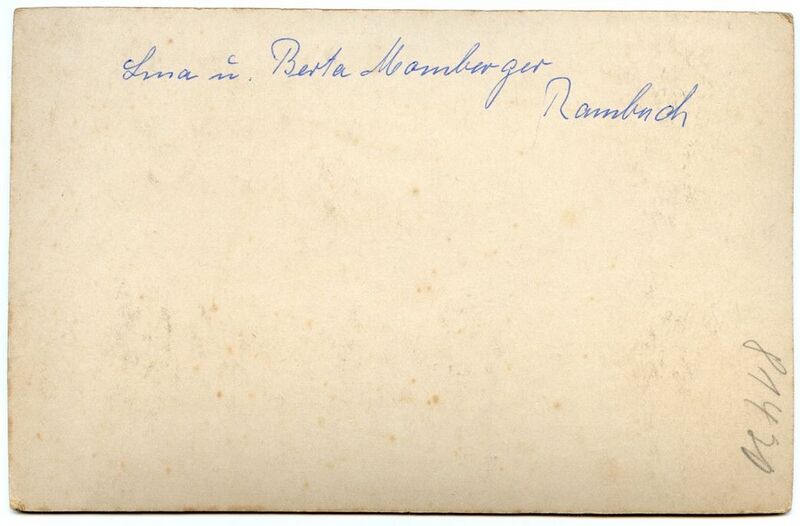 Lina u. Berta Momberger
Rambach
81430